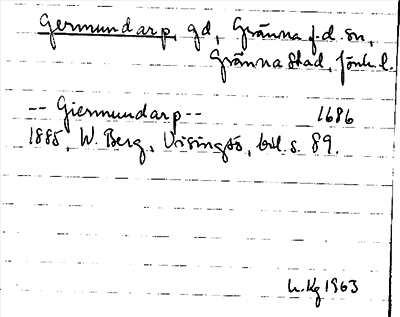 Germundarp, gd, Gränna f.d. sn,
Gränna stad, Jönk. l.
-- Giermundarp -- 1686
1885, W. Berg, Visingsö, bil. s. 89.
h.Kg 1963